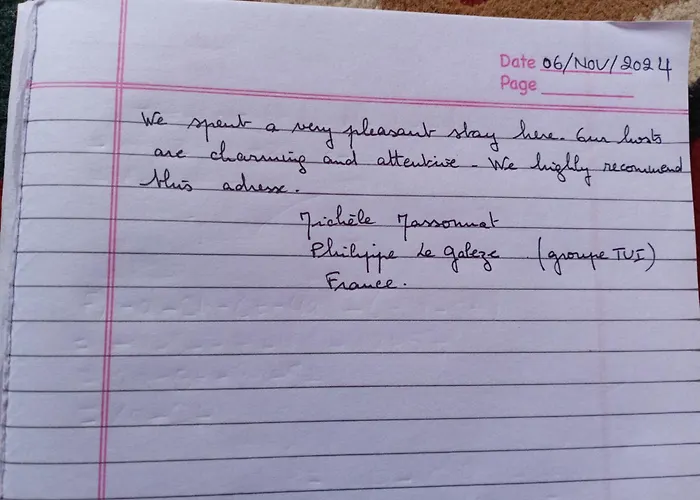 Date 06/NOV/2024
Page
We spent a very pleasant stay here. Our hosts
are charming and attentive - We highly recommend
this adresse.
Michèle Massonnat
Philippe Le Galeze (groupe TUI)
France.